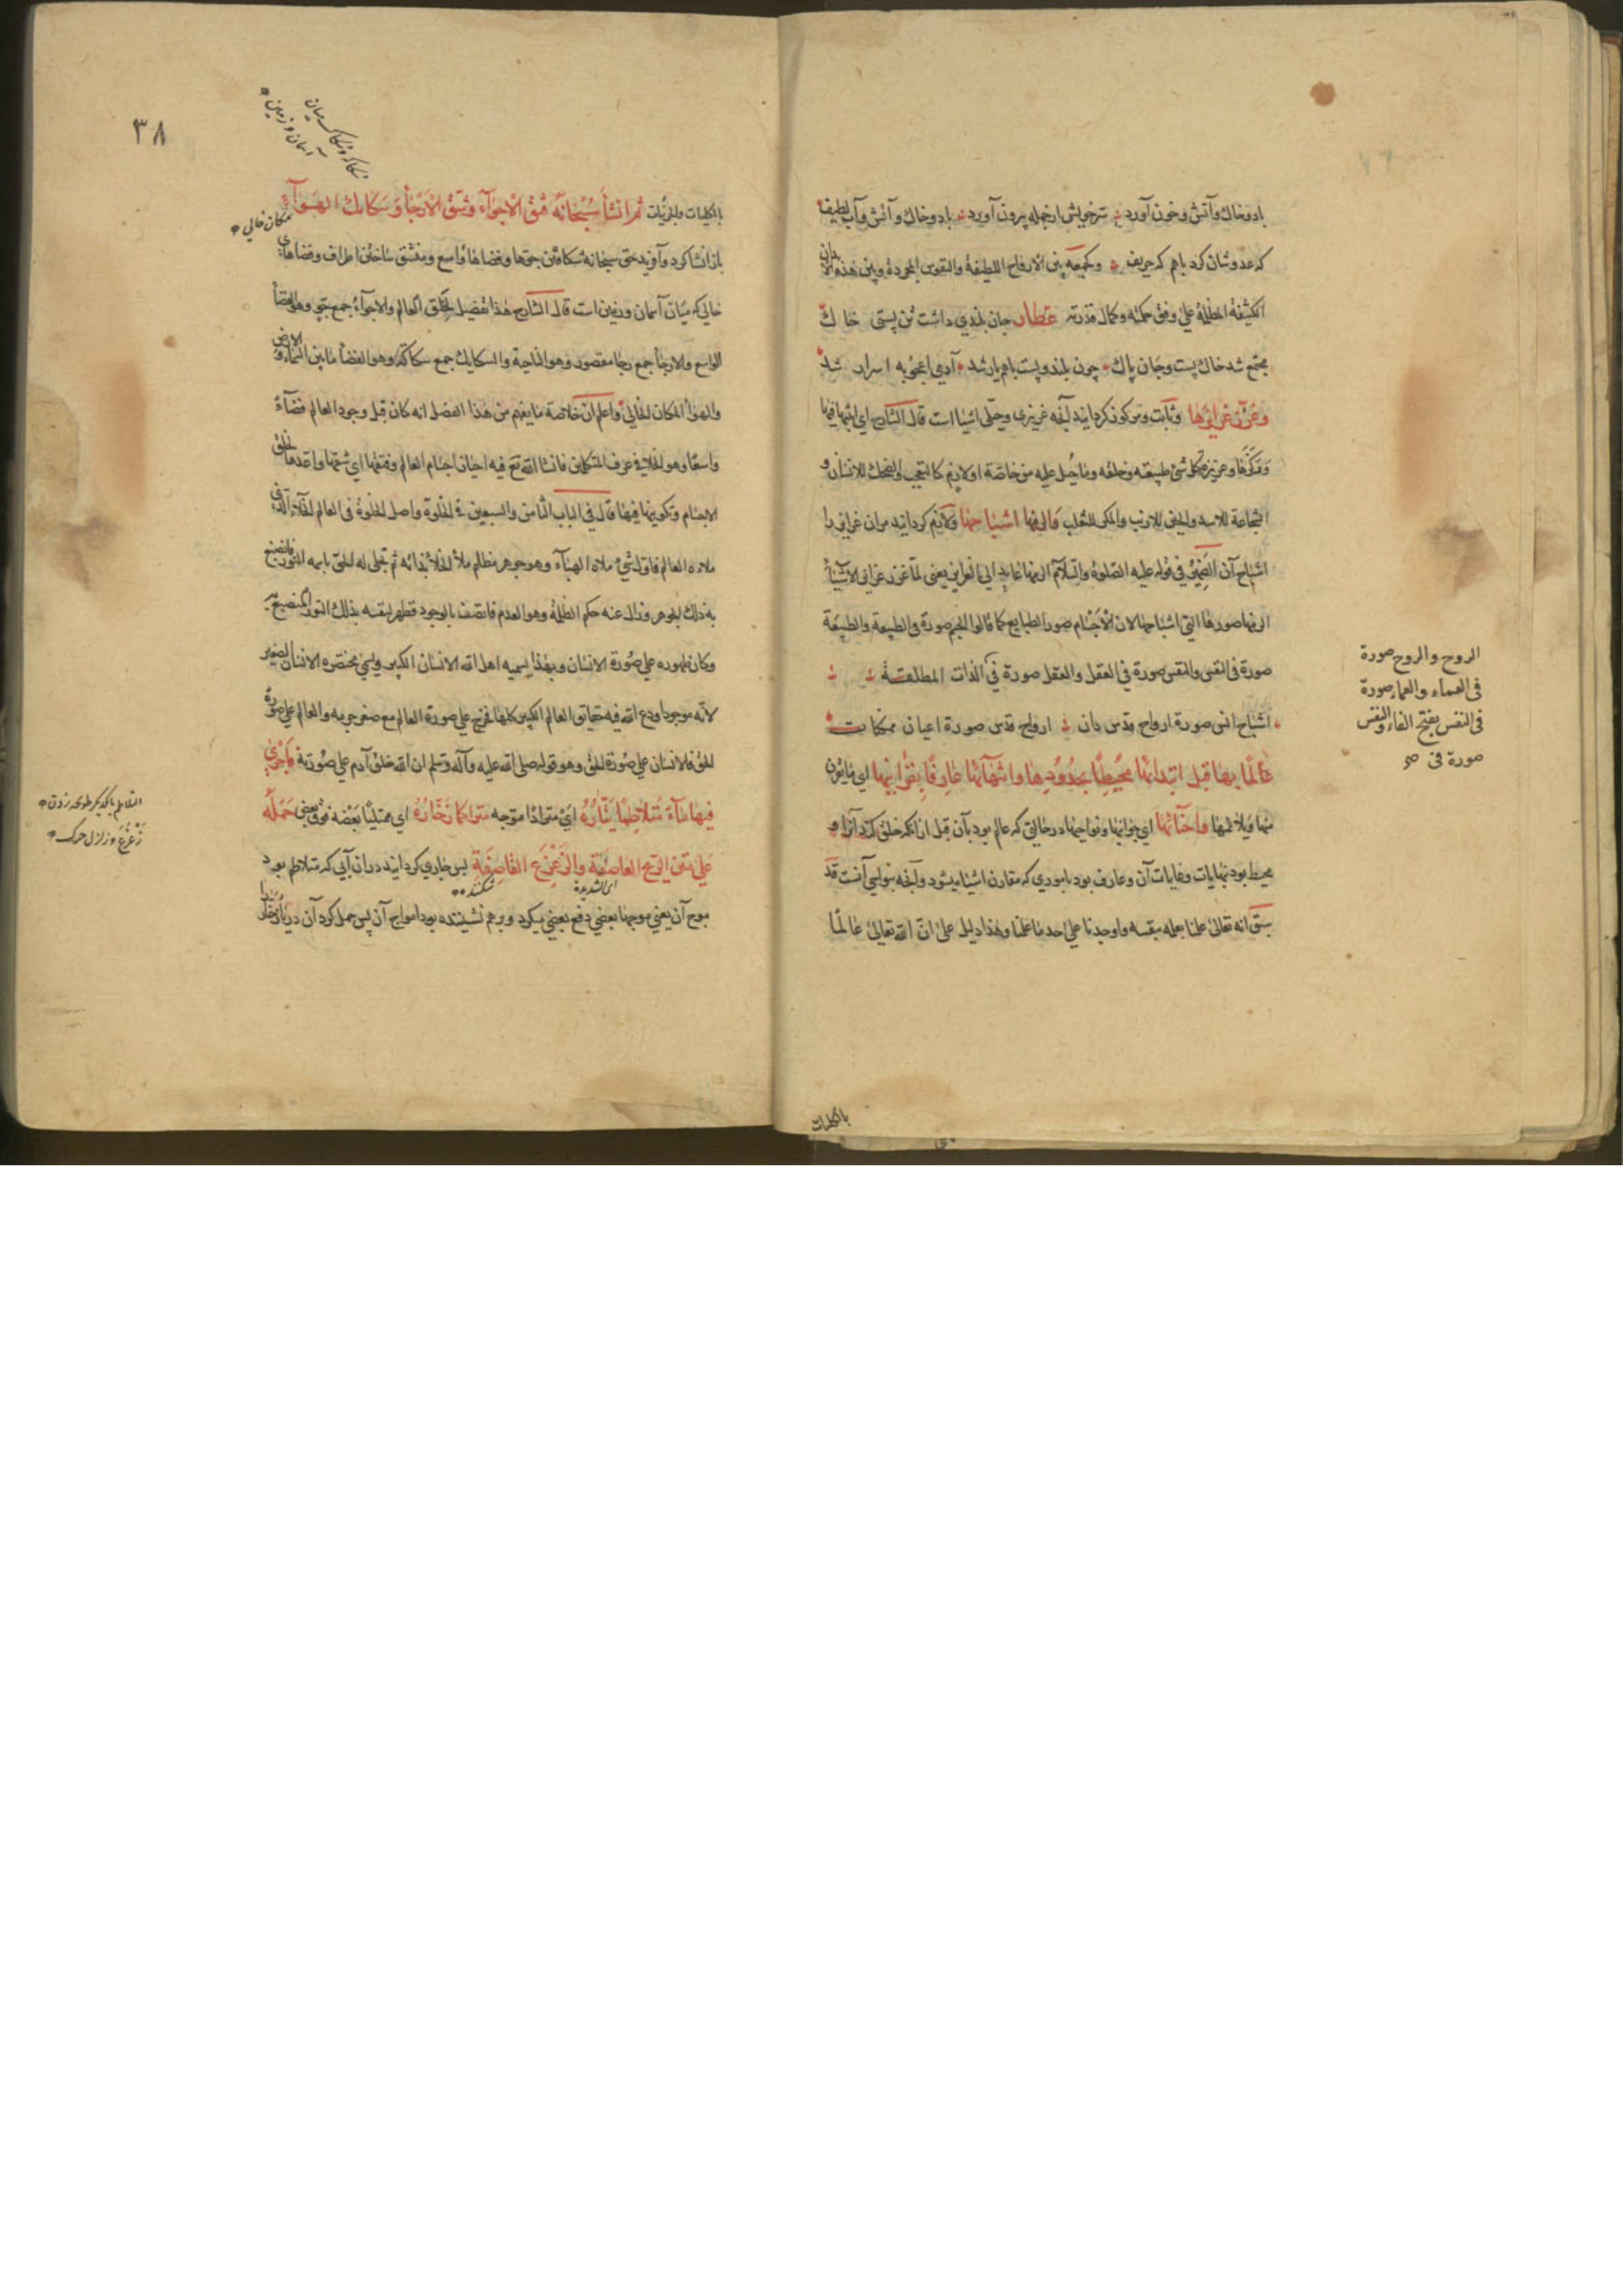 باد و خاك و آتش و خون آورد سرّ خويش از جمله بيرون آورد باد و خاك و آتش و آب لطيف
كه عدوشان كرد باهم كه حريف وكجمعه بين الارواح اللطيفة والنفوس المجردة وبين هذه الابدان
الكثيفة المظلمة على وفق حكمته وكمال قدرته عطار جان بلندى داشت تن پستى خاك
مجتمع شد خاك پست و جان پاك چون بلند و پست باهم يار شد آدمى اعجوبه اسرار شد
وغرّز غرائزها و ثابت ومركوز كردانيد آنچه غريزى وجبلّى اشيا است قال الشارح اى اثبتها فيها
وركّزها وغريزة كل شئ طبيعته وخلقه وما جبل عليه من خاصّة او لازم كالتعجب والضحك للانسان و
الشجاعة للاسد والجبن للارنب والمكر للثعلب والزمها اشباحها ولازم كردانيد مر ان غرايز را
اشباح آن الضمير فى قوله عليه الصّلوة والسّلام الزمها عايد الى الغرايز يعنى لمّا غرّز غرائز الاشياء
الزمها صورها التى اشباحها لان الاجسام صور الطبايع كما قالوا الجسم صورة فى الطبيعة والطبيعة
صورة فى النفس والنفس صورة فى العقل والعقل صورة فى الذات المطلقة
الروح والروح صورة
فى العماء والعماء صورة
فى النفس بفتح الفاء والنفس
صورة فى
اشباح انس صورة ارواح قدس دان ارواح قدس صورة اعيان ممكنات
عالمًا بها قبل ابتدائها محيطًا بحدودها وانتهائها عارفًا بقرائنها اى ما يقترن
منها ويلازمها واحنائها اى جوانبها ونواحيها در حالتى كه عالم بود بآن قبل از آنكه خلق كرد آنرا و
محيط بود بنهايات وغايات آن وعارف بود بامورى كه مقارن اشيا ميشود وآنچه نواحى آنست قد
سبق انه تعالى علمنا بعلمه بنفسه واوجدنا على حد ما علمنا وهذا دليل على انّ الله تعالى عالمًا
بالكليات
٣٨
سكاك وسكاكه ميان
آسمان وزمين
بالكليات والجزئيات ثم انشأ سبحانه فتق الاجواء وشق الارجاء وسكائك الهواء
مكان خالى
باز انشا كرد و آفريد حق سبحانه شكافتن جوّها وفضاهاى واسع ومنشق ساختن اطراف وفضاهاى
خالى كه ميان آسمان وزمين است قال الشارح هذا تفصيل لخلق العالم والاجواء جمع جو وهو الفضاء
الواسع والارجاء جمع رجا مقصور وهو الناحية والسكايك جمع سكاكة وهو الفضاء ما بين السماء والارض
والهواء المكان الخالى واعلم ان خلاصة ما يفهم من هذا الفصل انه كان قبل وجود العالم فضاء
واسعًا وهو الخلاء فى عرف المتكلمين فانشا الله تع فيه احياز اجسام العالم وفتقها اى شقها واعدها لخلق
الاجسام وتكوينها فيها قال فى الباب الثامن والسبعين فى الخلوة واصل الخلوة فى العالم الخلاء الذى
ملاءه العالم فاول شئ ملاه الهباء وهو جوهر مظلم ملأ الخلأ بذاته ثم تجلى له الحق باسمه النور فانصبغ
به ذلك الجوهر وزال عنه حكم الظلمة وهو العدم فاتصف بالوجود فظهر لنفسه بذلك النور المنصبغ به
وكان ظهوره على صورة الانسان وبهذا يسميه اهل الله الانسان الكبير ويسمى مختصره الانسان الصغير
لانّه موجود اودع الله فيه حقايق العالم الكبير كلها فخرج على صورة العالم مع صغر جرمه والعالم على صورة
الحق فالانسان على صورة الحق وهو قوله صلى الله عليه وآله وسلم ان الله خلق آدم على صورته فاجرى
فيها ماء متلاطمًا تيّاره اى مترادّا موجه متراكما زخّاره اى ممتلئا بعضه فوق بعض حمله
التلاطم بايكديكر طپانچه زدن
زَعْزَعَ وزلزل حرّك
على متن الريح العاصفة والزعزع القاصفة پس جارى كردانيد در ان آبى كه متلاطم بود
اى الشديدة شكننده
موج آن يعنى موجها بعضى دفع بعضى ميكرد وبر هم نشيننده بود امواج آن پس حمل كرد آن درياى زخار را